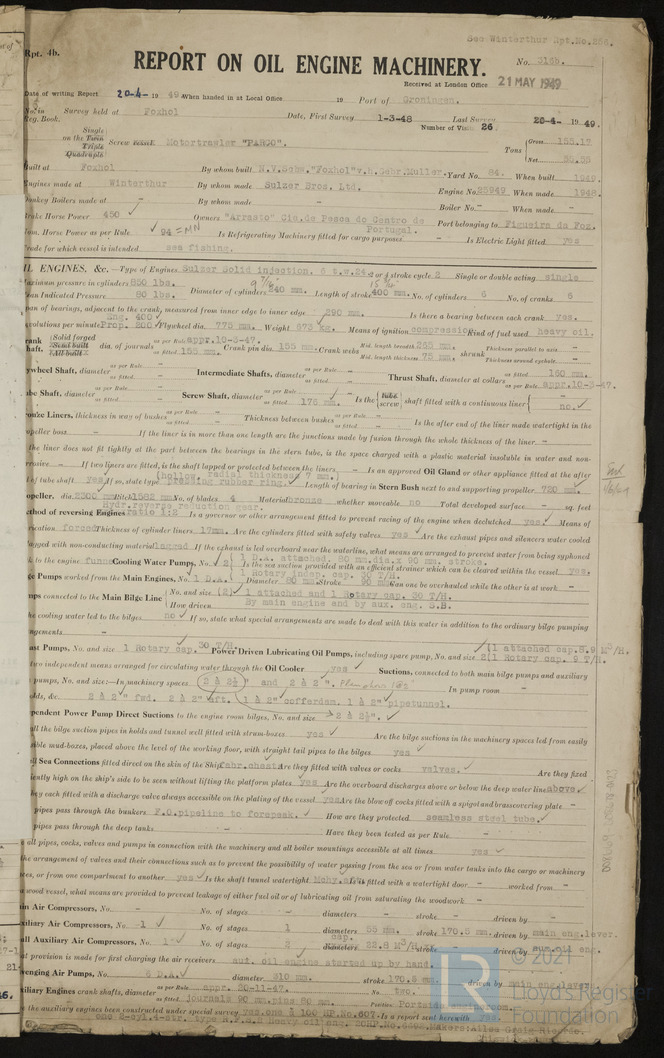 See Winterthur Rpt.No.
Rpt. 4b.
REPORT ON OIL ENGINE MACHINERY.
No. 3165.
Received at London Office 21 MAY 1949
Date of writing Report 20-4- 19 49 When handed in at Local Office 19 Port of Groningen.
No. in Reg. Book. Survey held at Foxhol Date, First Survey 1-3-48 Last Survey 20-4- 19 49.
Number of Visits 26.
Single on the Twin Triple Quadruple Screw vessel Motortrawler "PARGO". Tons Gross 155.17 Net
Built at Foxhol By whom built N.V.Schw."Foxhol"v.h.Gebr.Muller. Yard No. 84. When built 1949.
Engines made at Winterthur By whom made Sulzer Bros. Ltd. Engine No. 25949 When made 1948.
Donkey Boilers made at - By whom made - Boiler No. - When made -
Brake Horse Power 450 Owners "Arrasto" Cie.de Pesca do Centro de Portugal. Port belonging to Figueira da Foz.
Nom. Horse Power as per Rule 94 = MN Is Refrigerating Machinery fitted for cargo purposes - Is Electric Light fitted yes
Trade for which vessel is intended sea fishing.
OIL ENGINES, &c. —Type of Engines Sulzer Solid injection. 6 t.w.24. 2 or 4 stroke cycle 2 Single or double acting single
Maximum pressure in cylinders 850 lbs. Diameter of cylinders 240 mm. Length of stroke 400 mm. No. of cylinders 6 No. of cranks 6
Mean Indicated Pressure 80 lbs.
Span of bearings, adjacent to the crank, measured from inner edge to inner edge 290 mm. Is there a bearing between each crank yes.
Revolutions per minute Eng. 400 Prop. 200 Flywheel dia. 775 mm. Weight 673 kg. Means of ignition compression Kind of fuel used heavy oil.
Crank Shaft, Solid forged Semi built All built dia. of journals as per Rule appr.10-3-47. as fitted 155 mm. Crank pin dia. 155 mm. Crank webs Mid. length breadth 265 mm. Mid. length thickness 75 mm. shrunk Thickness parallel to axis - Thickness around eyehole -
Flywheel Shaft, diameter as per Rule - as fitted - Intermediate Shafts, diameter as per Rule - as fitted - Thrust Shaft, diameter at collars as fitted 160 mm. as per Rule appr.10-3-47.
Tube Shaft, diameter as per Rule - as fitted - Screw Shaft, diameter as per Rule as fitted 176 mm. Is the tube screw shaft fitted with a continuous liner - no.
Bronze Liners, thickness in way of bushes as per Rule - as fitted - Thickness between bushes as per Rule - as fitted - Is the after end of the liner made watertight in the
propeller boss - If the liner is in more than one length are the junctions made by fusion through the whole thickness of the liner. -
If the liner does not fit tightly at the part between the bearings in the stern tube, is the space charged with a plastic material insoluble in water and non-
corrosive - If two liners are fitted, is the shaft lapped or protected between the liners - Is an approved Oil Gland or other appliance fitted at the after
end of tube shaft yes If so, state type (hollow, radial thickness 7 mm.) pressing rubber ring. Length of Bearing in Stern Bush next to and supporting propeller 720 mm.
Propeller, dia. 2000 mm Pitch 1582 mm No. of blades 4 Material Bronze whether moveable no Total developed surface - sq. feet
Method of reversing Engines Hydr.reverse reduction gear. ratio 1:2 Is a governor or other arrangement fitted to prevent racing of the engine when declutched yes Means of
lubrication forced Thickness of cylinder liners 17mm. Are the cylinders fitted with safety valves yes Are the exhaust pipes and silencers water cooled
or lagged with non-conducting material lagged If the exhaust is led overboard near the waterline, what means are arranged to prevent water from being syphoned
back to the engine funnel Cooling Water Pumps, No. 2 1 D.A. attached, 80 mm.dia.x 90 mm. stroke. 1 Rotary indep. cap. 30 T/H. Is the sea suction provided with an efficient strainer which can be cleared within the vessel yes.
Bilge Pumps worked from the Main Engines, No. 1 D.A. Diameter 80 mm Stroke 90 mm Can one be overhauled while the other is at work -
Pumps connected to the Main Bilge Line No. and size (2) 1 attached and 1 Rotary cap. 30 T/H.
How driven By main engine and by aux. eng. S.B.
Is the cooling water led to the bilges no If so, state what special arrangements are made to deal with this water in addition to the ordinary bilge pumping
arrangements -
Ballast Pumps, No. and size 1 Rotary cap. 30 T/H. Power Driven Lubricating Oil Pumps, including spare pump, No. and size 2 (1 attached cap.8.9 M3/H. (1 Rotary cap. 9 T/H.
Are two independent means arranged for circulating water through the Oil Cooler yes Suctions, connected to both main bilge pumps and auxiliary
bilge pumps, No. and size:—In machinery spaces 2 à 2½" and 2 à 2". In pump room -
In holds, &c. 2 à 2" fwd. 2 à 2" aft. 1 à 2" cofferdam. 1 à 2" pipetunnel.
Independent Power Pump Direct Suctions to the engine room bilges, No. and size 2 à 2½".
Are all the bilge suction pipes in holds and tunnel well fitted with strum-boxes yes Are the bilge suctions in the machinery spaces led from easily
accessible mud-boxes, placed above the level of the working floor, with straight tail pipes to the bilges yes
Are all Sea Connections fitted direct on the skin of the Ship fabr.chest Are they fitted with valves or cocks valves. Are they fixed
sufficiently high on the ship's side to be seen without lifting the platform plates yes Are the overboard discharges above or below the deep water line above.
Are they each fitted with a discharge valve always accessible on the plating of the vessel yes Are the blow off cocks fitted with a spigot and brass covering plate -
What pipes pass through the bunkers F.O.pipeline to forepeak. How are they protected seamless steel tube.
What pipes pass through the deep tanks - Have they been tested as per Rule -
Are all pipes, cocks, valves and pumps in connection with the machinery and all boiler mountings accessible at all times yes
Is the arrangement of valves and their connections such as to prevent the possibility of water passing from the sea or from water tanks into the cargo or machinery
spaces, or from one compartment to another yes Is the shaft tunnel watertight Mchy.aft. Is it fitted with a watertight door - worked from -
If a wood vessel, what means are provided to prevent leakage of either fuel oil or of lubricating oil from saturating the woodwork -
Main Air Compressors, No. - No. of stages - diameters - stroke - driven by -
Auxiliary Air Compressors, No. 1 No. of stages 1 diameters 55 mm. stroke 170.5 mm. driven by main eng.lever.
Small Auxiliary Air Compressors, No. 1 No. of stages 2 cap. diameters 22.8 M3/H. stroke driven by aux.oil eng.
What provision is made for first charging the air receivers aut. oil engine started up by hand.
Scavenging Air Pumps, No. 6 D.A. diameter 310 mm. stroke 170.5 mm. driven by main eng.lever.
Auxiliary Engines crank shafts, diameter as per Rule appr. 20-11-47. as fitted Journals 90 mm.pins 80 mm. No. two. Position
Have the auxiliary engines been constructed under special survey Yes.one à 100 HP.No.607. Is a report sent herewith Yes
© 2021
Lloyd's Register
Foundation